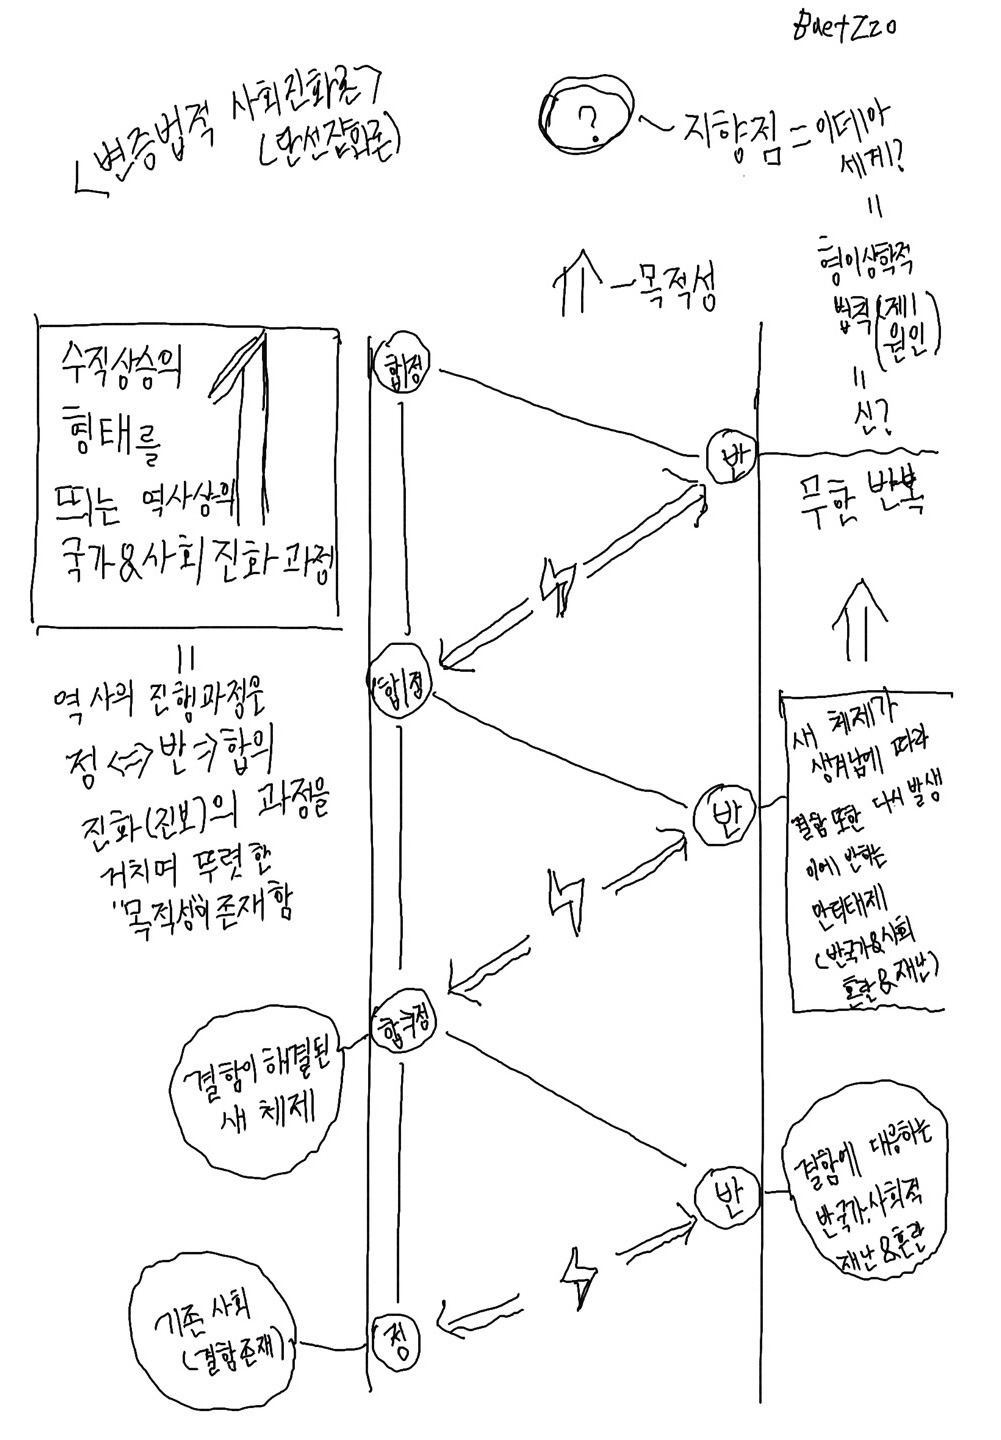 BaetZzo
<변증법적 사회진화론>
(단선진화론)
?
지향점 = 이데아
세계?
=
형이상학적
법칙(제1
원인)
=
신?
목적성
수직상승의
형태를
띄는 역사상의
국가&사회 진화 과정
=
역사의 진행과정은
정 <=> 반 => 합의
진화(진보)의 과정을
거치며 뚜렷한
"목적성"이 존재함
합=정
반
무한 반복
합=정
반
새 체제가
생겨남에 따라
결함 또한 다시 발생
이에 반하는
안티테제
(반국가&사회
혼란&재난)
합=정
결함이 해결된
새 체제
반
결함에 대응하는
반국가.사회적
재난&혼란
정
기존 사회
(결함 존재)